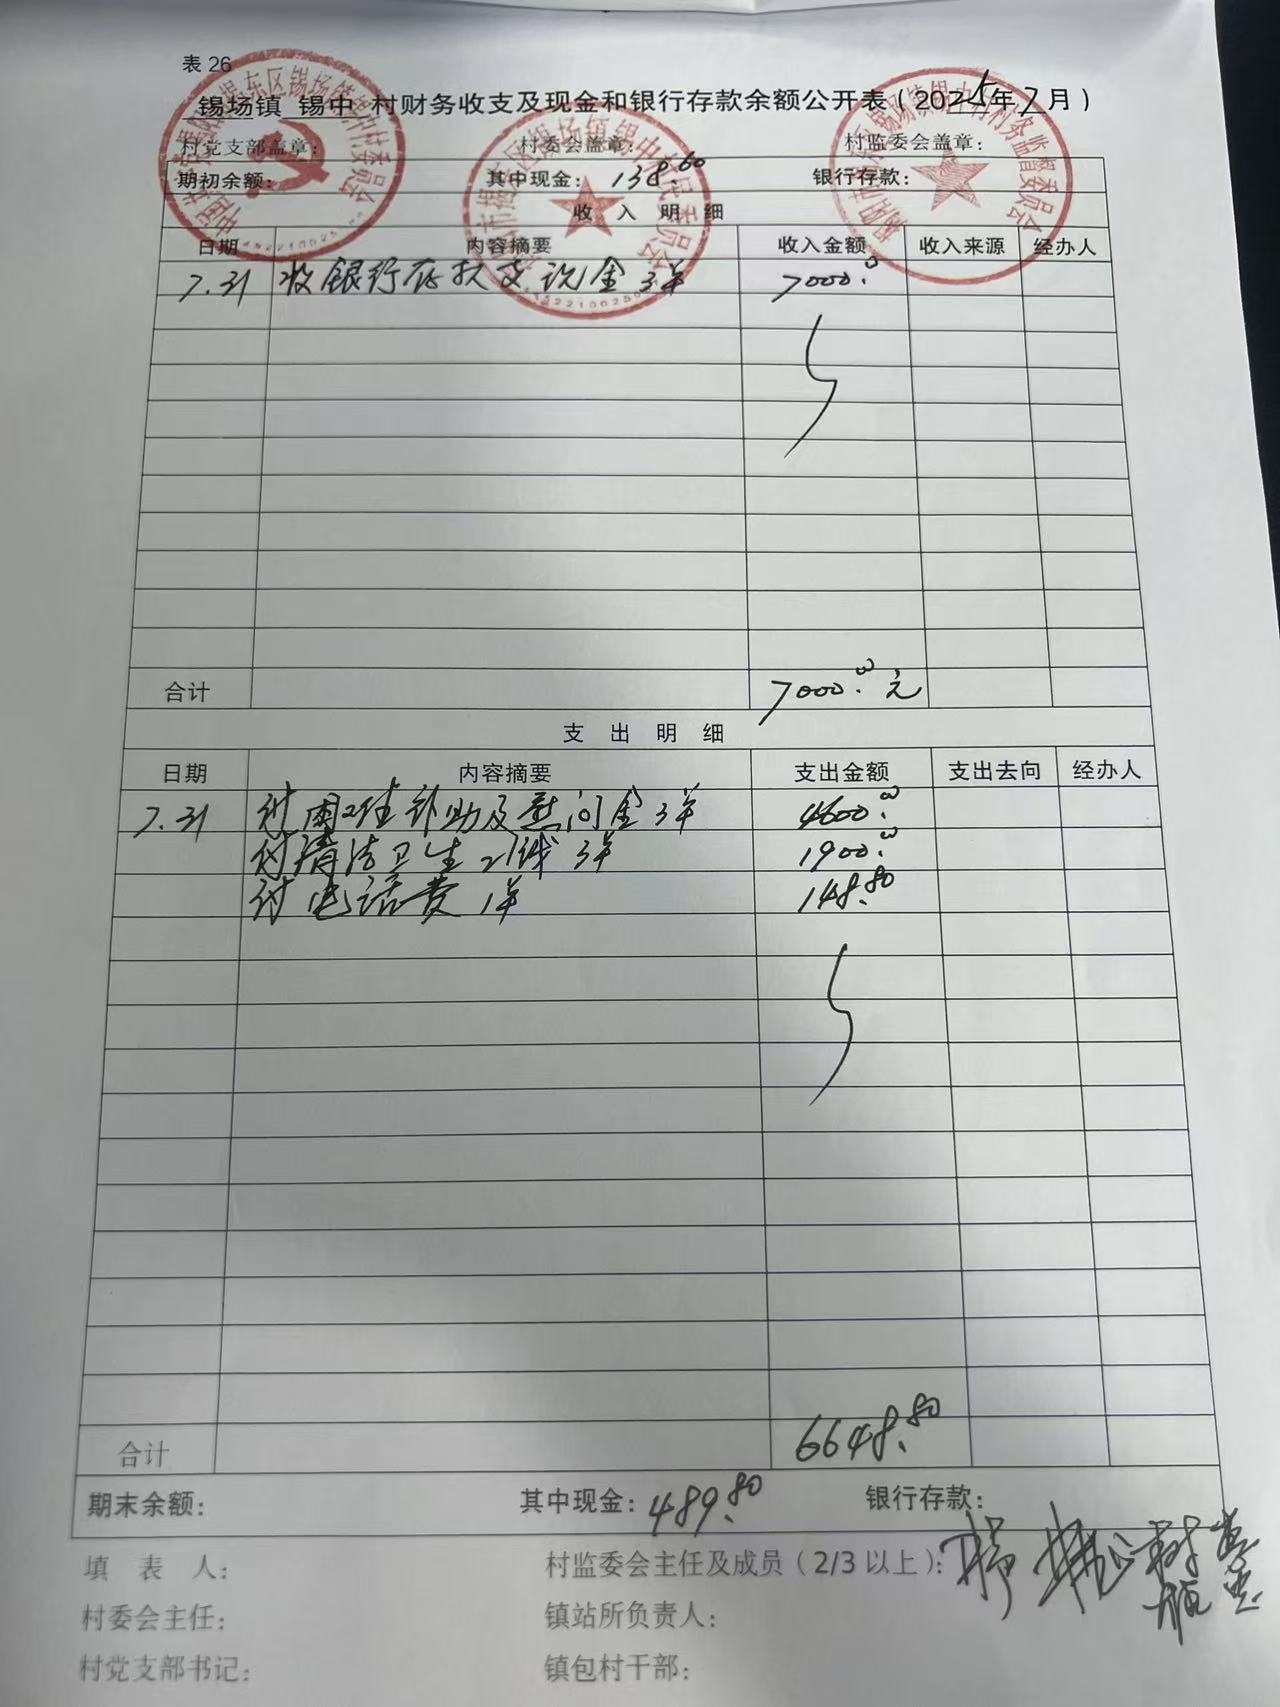 表 26
锡场镇 锡中 村财务收支及现金和银行存款余额公开表（2025年7月）
村党支部盖章： 村委会盖章： 村监委会盖章：
期初余额： 其中现金：138.60 银行存款：
收 入 明 细
日期 内容摘要 收入金额 收入来源 经办人
7.31 收银行存款支现金3单 7000.00
合计 7000.00元
支 出 明 细
日期 内容摘要 支出金额 支出去向 经办人
7.31 付困难补助及慰问金3单 4600.00
付清洁卫生 3单 1900.00
付电话费1单 148.80
合计 6648.80
期末余额： 其中现金：489.80 银行存款：
填 表 人： 村监委会主任及成员（2/3 以上）：
村委会主任： 镇站所负责人：
村党支部书记： 镇包村干部：